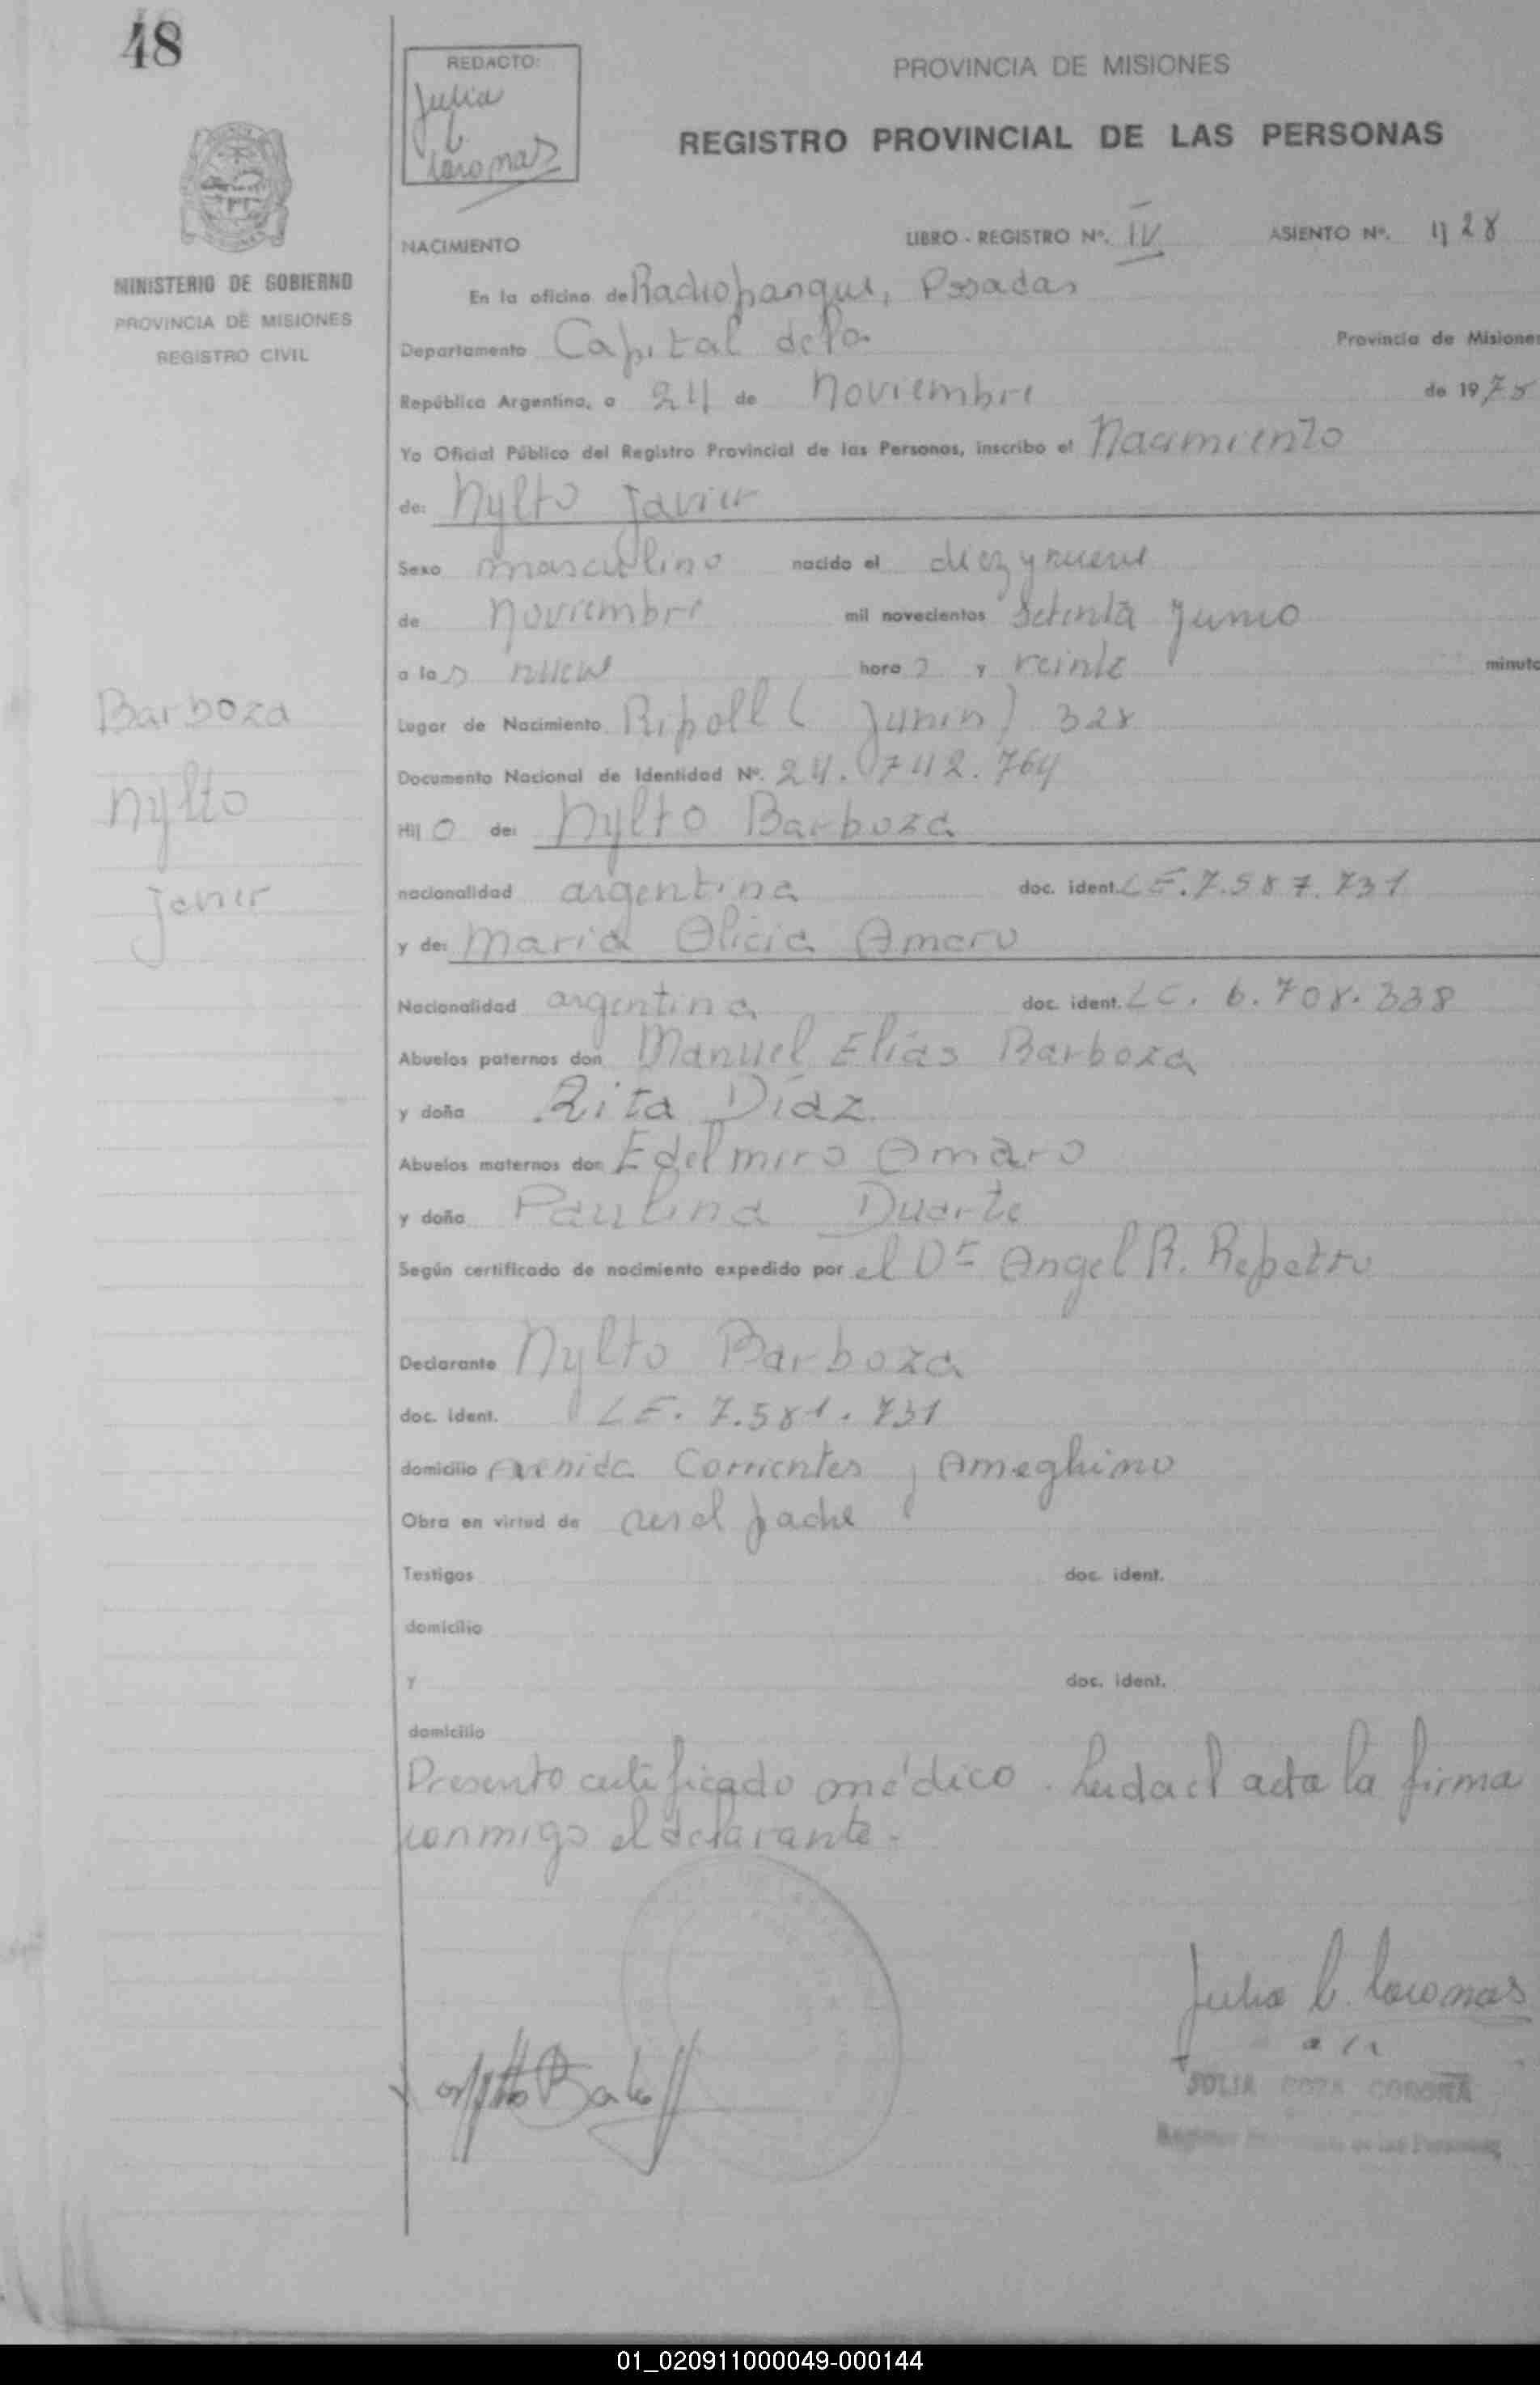 48
REDACTO:
Julia
PROVINCIA DE MISIONES
REGISTRO PROVINCIAL DE LAS PERSONAS
NACIMIENTO
LIBRO - REGISTRO Nº. IV ASIENTO Nº. 428
MINISTERIO DE GOBIERNO
PROVINCIA DE MISIONES
REGISTRO CIVIL
En la oficina de Posadas
Departamento Capital de la Provincia de Misiones
República Argentina, a 24 de Noviembre de 1975
Yo Oficial Público del Registro Provincial de las Personas, inscribo el Nacimiento
de: Nylto Javier
Sexo masculino nacido el diez y nueve
de noviembre mil novecientos setenta y cinco
a las nueve horas y veinte minuto
Barboza
Nylto
Javier
Lugar de Nacimiento Ripoll (Junin) 328
Documento Nacional de Identidad Nº. 24.742.764
Hijo de: Nylto Barboza
nacionalidad argentina doc. ident. LE. 7.587.731
y de: Maria Alicia Amaro
Nacionalidad argentina doc. ident. LC. 6.708.338
Abuelos paternos don Manuel Elías Barboza
y doña Rita Díaz
Abuelos maternos don Edelmiro Amaro
y doña Paulina Duarte
Según certificado de nacimiento expedido por el Dr Angel R. Repetto
Declarante Nylto Barboza
doc. ident. LE. 7.581.731
domicilio Avenida Corrientes y Ameghino
Obra en virtud de ser el padre
Testigos doc. ident.
domicilio
y doc. ident.
domicilio
Presento certificado médico. Leida el acta la firma
conmigo el declarante.-
Julia
JULIA CORONA
01_020911000049-000144